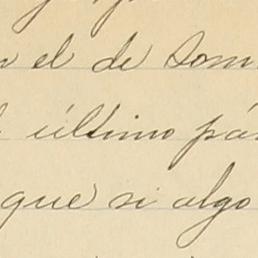 el de Som
último pá
que si algo